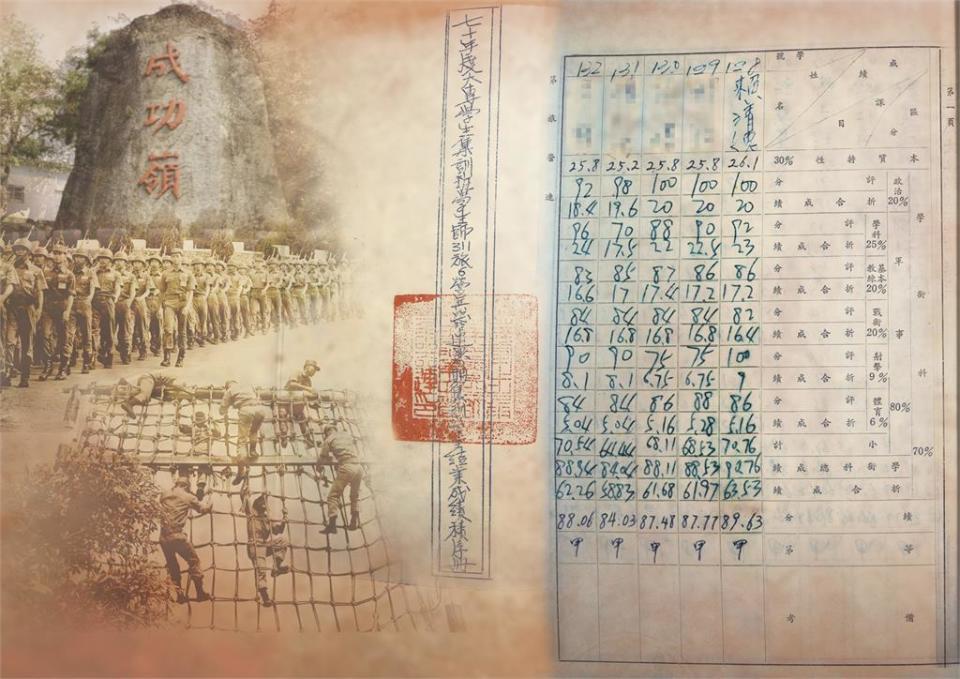 成功嶺
七十年度大專學生集訓班
311旅5營
結業成績積序冊
第一頁
第 旅 營 連
區分
課目
成績
學號
姓名
132 131 130 129 128
賴清德
本質特性 30%
25.8 25.2 25.8 25.8 26.1
學術科 70%
軍事 80%
政治 20%
評分
92 98 100 100 100
折合成績
18.4 19.6 20 20 20
學科 25%
評分
96 70 88 90 92
折合成績
24 17.5 22 22.5 23
基本教練 20%
評分
83 85 87 86 86
折合成績
16.6 17 17.4 17.2 17.2
戰術 20%
評分
84 84 84 84 82
折合成績
16.8 16.8 16.8 16.8 16.4
射擊 9%
評分
90 90 75 75 100
折合成績
8.1 8.1 6.75 6.75 9
體育 6%
評分
84 84 86 88 86
折合成績
5.04 5.04 5.16 5.28 5.16
小計
70.54 68.11 68.53 70.76
學術科總成績
88.94 84.04 88.11 88.53 90.76
折合成績
62.26 58.83 61.68 61.97 63.53
績分
88.06 84.03 87.48 87.77 89.63
等第
甲 甲 甲 甲 甲
備考